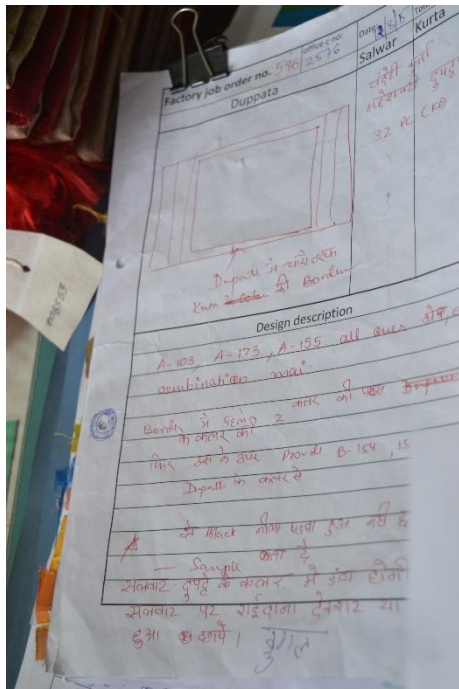 Factory job order no. 596
office c no: 2576
Date:
Duppata
Salwar
Kurta
चंदेरी कुर्ता
महेश्वरी दुपट्टा
32 PC (KD)
Dupatta में चारो तरफ
Kurta की Border
Design description
A-103, A-173, A-155 all over
combination mai.
Border में पहले 2 कलर की
के कलर की
फिर उस के उपर Providi B-154, 15
Dupatta के कलर से
नीला पड़ा हुआ नहीं है
— Sample बता दे
सलवार दुपट्टे के कलर में डाय होगी
सलवार पर राईदाना देकार या
हुआ छापे।
जुगल